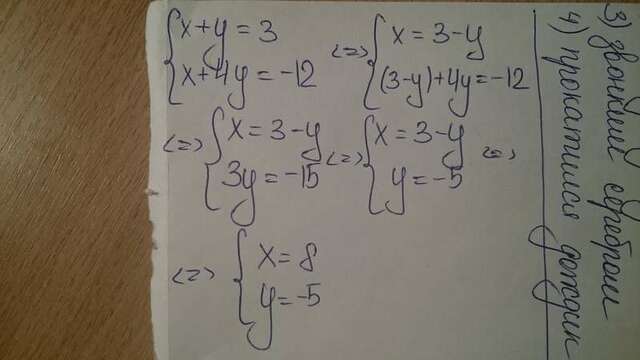 {x+y=3
{x+4y=-12
<=> {x=3-y
{(3-y)+4y=-12
<=> {x=3-y
{3y=-15
<=> {x=3-y
{y=-5
<=>
<=> {x=8
{y=-5
3) звонкий серебром
4) прокатился дождик